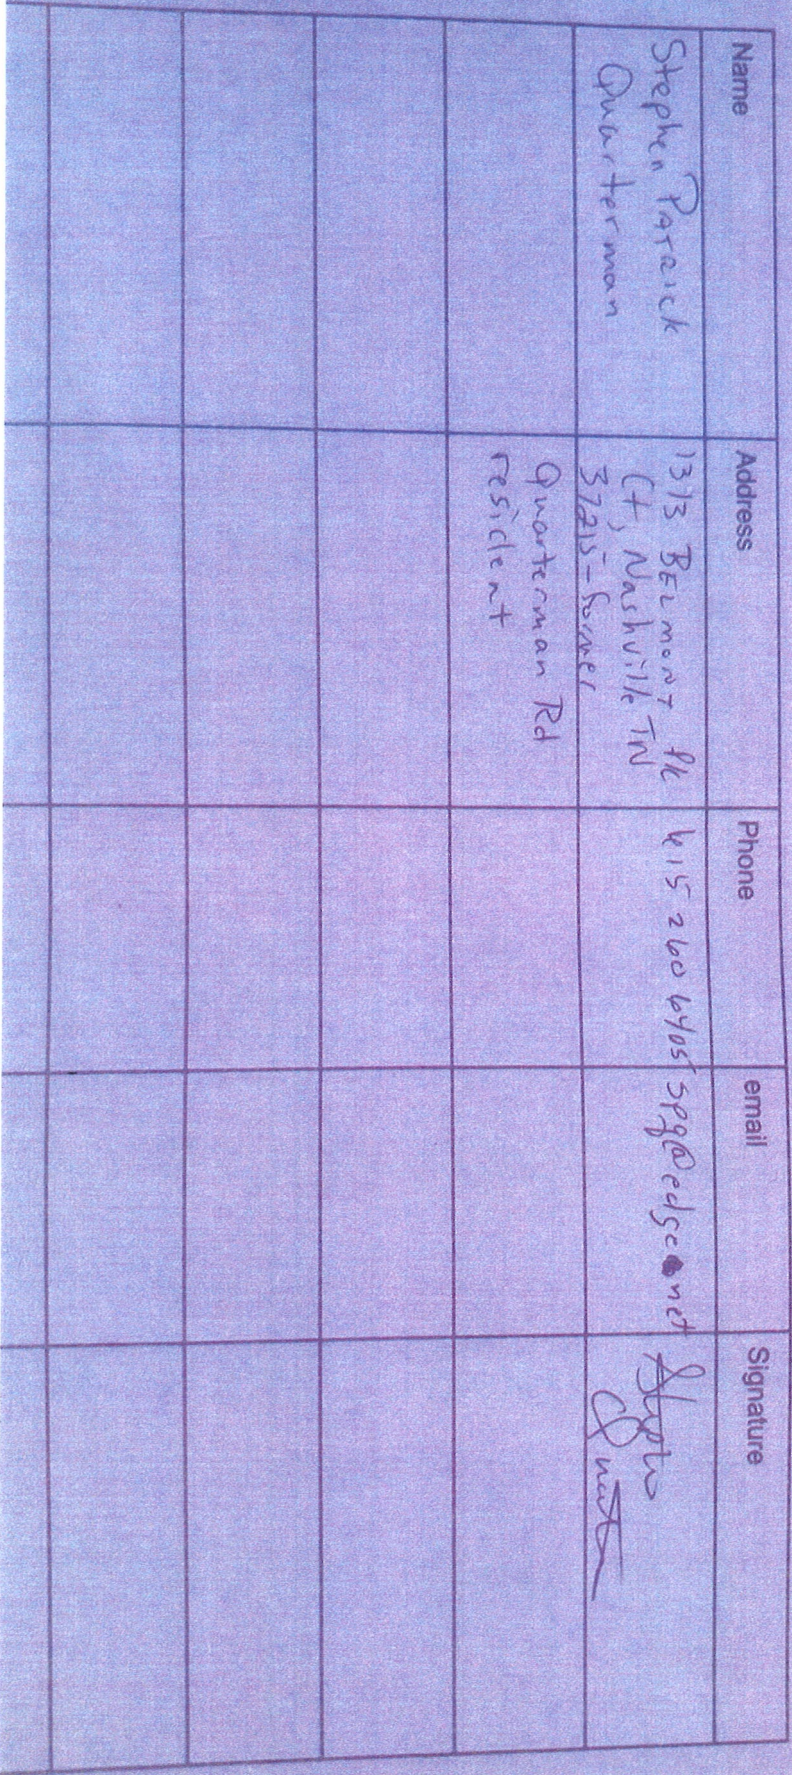 Name Address Phone email Signature
Stephen PATRICK
Quarterman
1313 BELMONT Pk
Ct, Nashville TN
37215 - former
Quarterman Rd
resident
615 260 6405
spq@edge.net